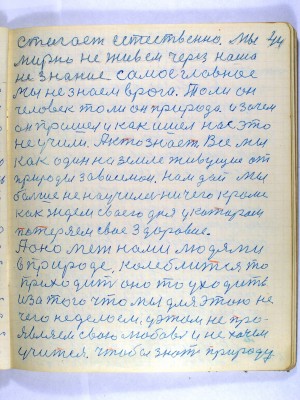 стигает естественно. Мы 44
мирно не живем через наша
не знание самое главное
мы не знаем врога. То ли он
человек то ли он природа и зачем
он пришел и как ишел нас это
не учили. А кто знает Все мы
как один на земле живущие от
природы зависемой, нам дай мы
больше не научились ничего кроме
как ждем своего дня у котором
потеряем свае здоровие.
А оно меж нами людями
в природе, колеблится то
приходить оно то уходить
изза того что мы для этого не
чего неделаем, у этом не про-
являем свою любовь и не хочем
учится, чтобы знать природу